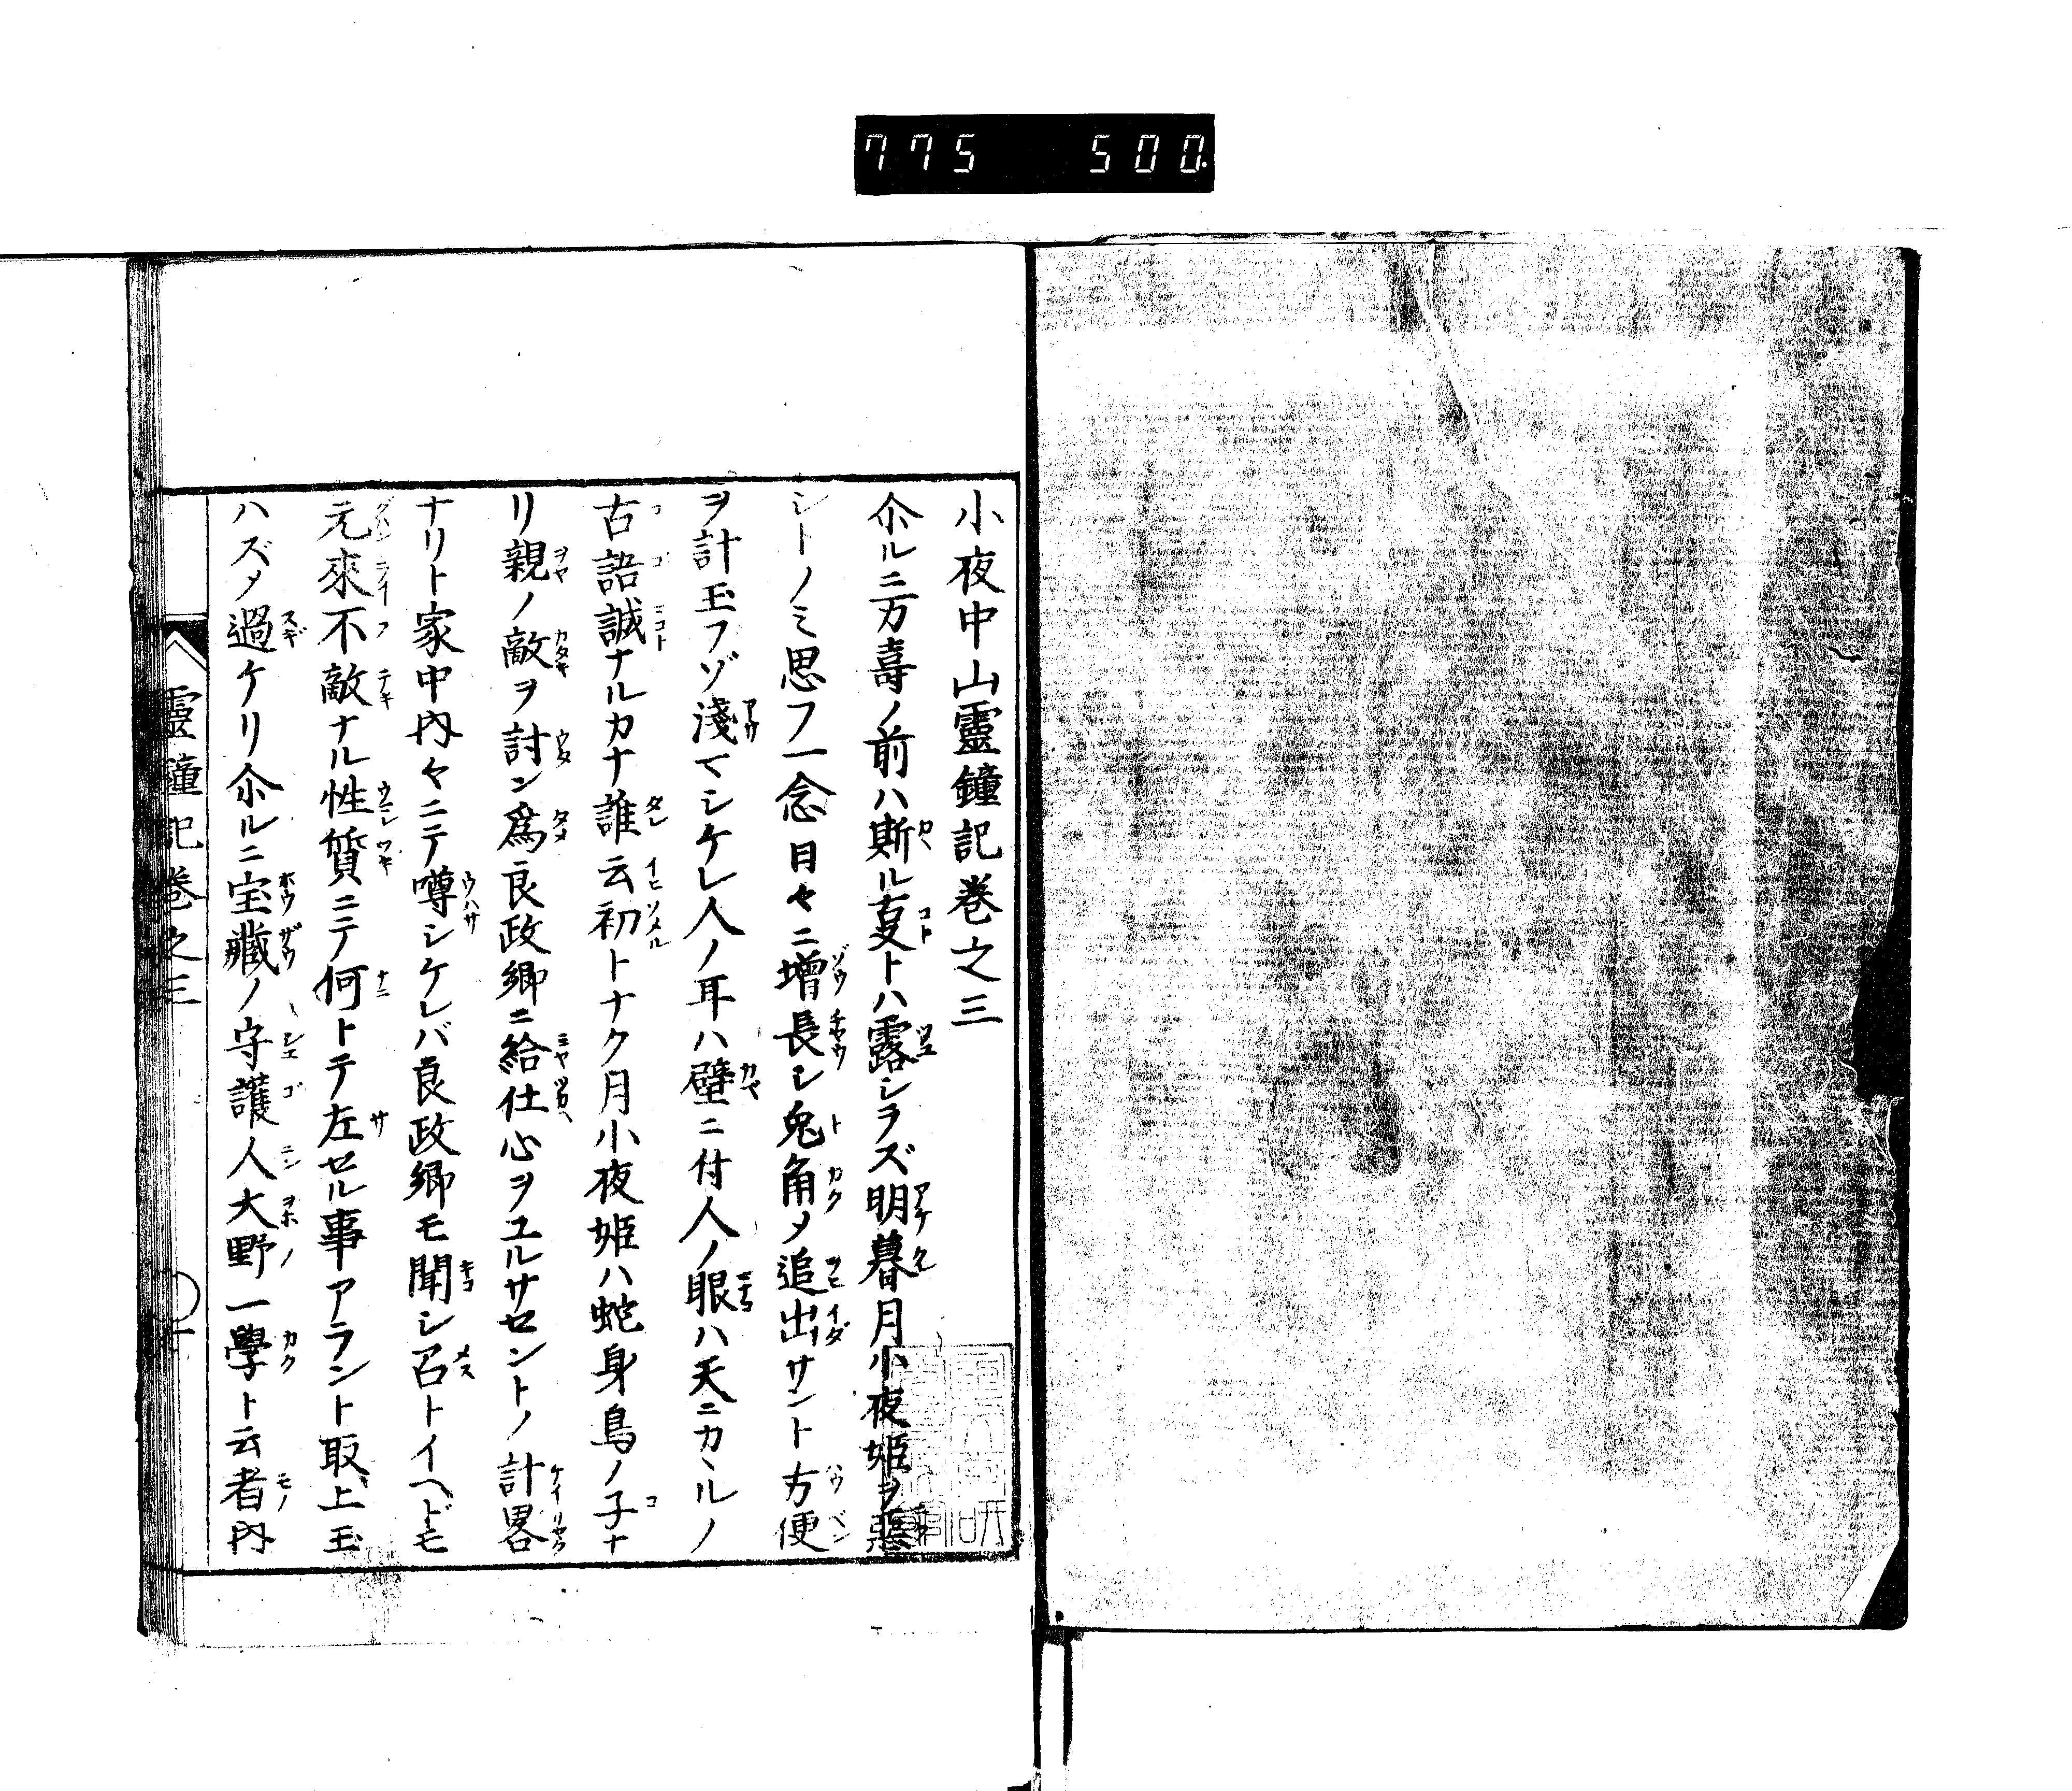 775 500
小夜中山靈鐘記巻之三
尒ルニ万壽ノ前ハ斯ル叓トハ露シラズ明暮月小夜姫ヲ惡
シトノミ思フ一念日々ニ增長シ兔角〆追出サント方便
ヲ計玉フゾ淺マシケレ人ノ耳ハ壁ニ付人ノ眼ハ天ニカヽルノ
古語誠ナルカナ誰云初トナク月小夜姫ハ蛇身鳥ノ子ナ
リ親ノ敵ヲ討ン爲良政卿ニ給仕心ヲユルサセントノ計畧
ナリト家中内々ニテ噂シケレバ良政卿モ聞シ召トイヘドモ
元來不敵ナル性質ニテ何トテ左セル事アラント取上玉
ハズ〆過ケリ尒ルニ宝藏ノ守護人大野一學ト云者内
靈鐘記巻之三